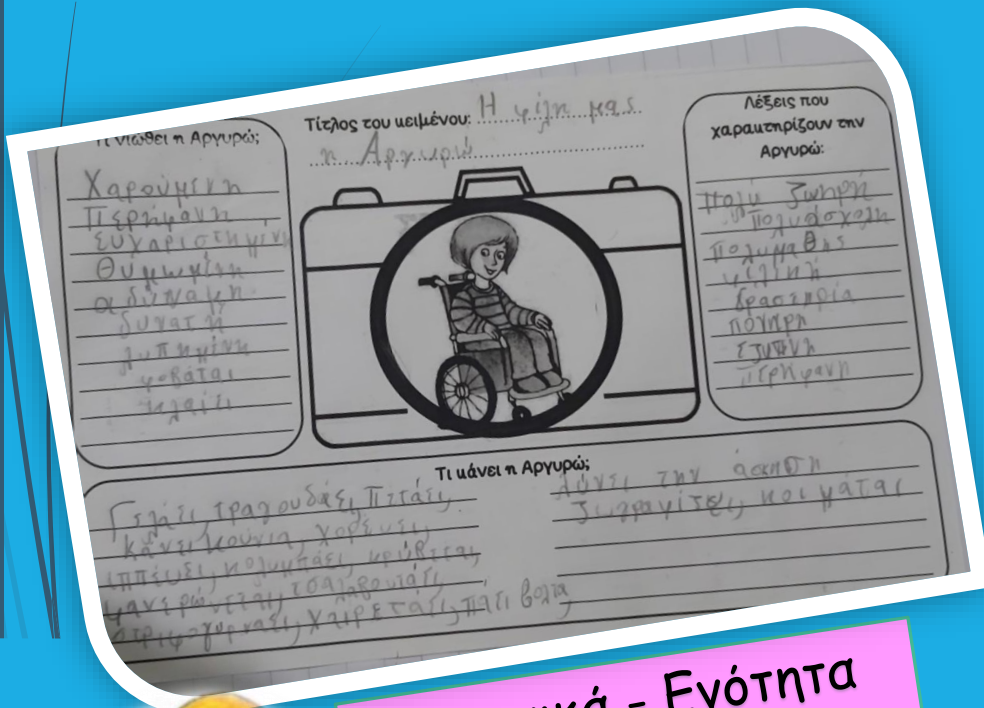 Τι νιώθει η Αργυρώ;
Χαρούμενη
Περήφανη
Ευχαριστημένη
Θυμωμένη
αδύναμη
δυνατή
λυπημένη
φοβάται
κλαίει
Τίτλος του κειμένου: Η φίλη μας
η Αργυρώ
Λέξεις που
χαρακτηρίζουν την
Αργυρώ:
πολύ ζωηρή
πολυάσχολη
πολυμαθής
φιλική
δραστήρια
πονηρή
έξυπνη
περήφανη
Τι κάνει η Αργυρώ;
Γελάει, τραγουδάει, πετάει,
κάνει κούνια, χορεύει,
ιππεύει, κολυμπάει, κρύβεται,
φανερώνεται, τσαλαβουτάει,
στριφογυρνάει, χαιρετάει, πάει βόλτα
λύνει την άσκηση
ζωγραφίζει, κοιμάται
- Ενότητα